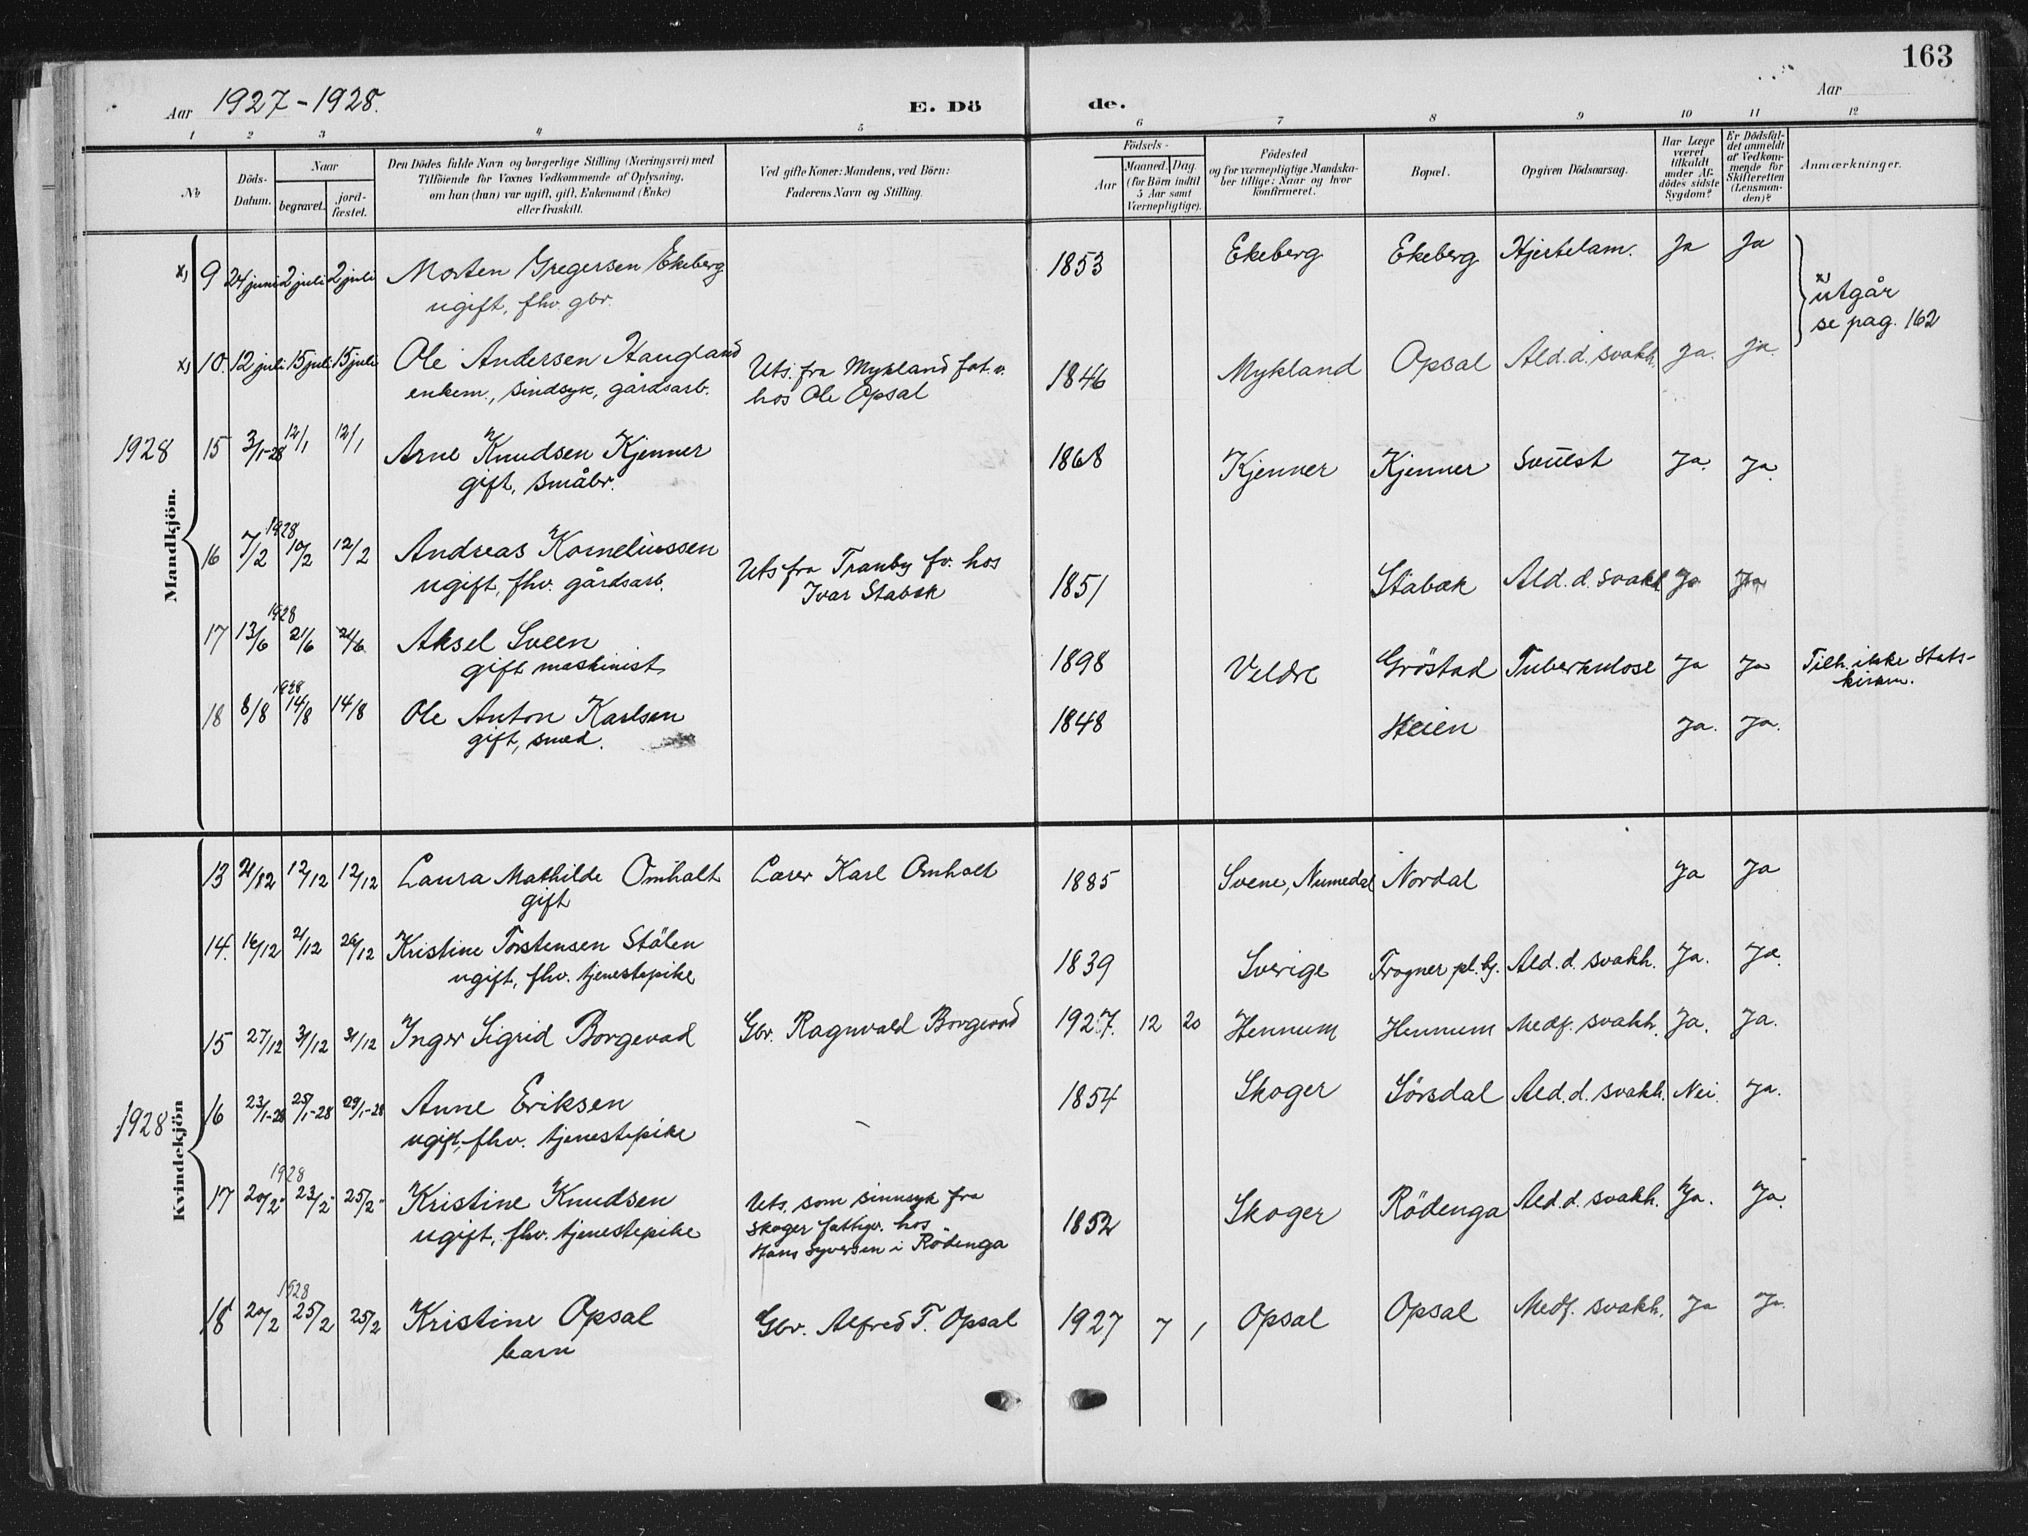 163
Aar 1927-1928. E. Dö de. Aar
1 2 3 4 5 6 7 8 9 10 11 12
No. Döds-Datum. Naar begravet. jord-fæstet. Den Dödes fulde Navn og borgerlige Stilling (Næringsvei) med Tilföiende for Voxnes Vedkommende af Oplysning, om han (hun) var ugift, gift, Enkemand (Enke) eller fraskilt. Ved gifte Koner: Mandens, ved Börn: Faderens Navn og Stilling. Födsels- Aar Maaned. Dag. (for Börn indtil 5 Aar samt Værnepligtige). Födested og for værnepligtige Mandska-ber tillige: Naar og hvor konfirmeret. Bopæl. Opgiven Dödsaarsag. Har Læge været tilkaldt under Af-dödes sidste Sygdom? Er Dödsfal-det anmeldt af Vedkom-mende for Skifteretten (Lensman-den)? Anmærkninger.
Mandkjön.
x) 9 24 juni 2 juli 2 juli Morten Gregersen Ekeberg 1853 Ekeberg Ekeberg Hjertelam. Ja Ja
ugift, fhv. gbr.
x) utgår
se pag. 162
x) 10. 12 juli 15 juli 15 juli Ole Andersen Haugland Uts. fra Mykland fat.v. 1846 Mykland Opsal Ald.d. svakh. Ja. Ja.
enkem., sindsyk, gårdsarb. hos Ole Opsal
1928 15 3/1-28 12/1 12/1 Arne Knudsen Kjenner 1868 Kjenner Kjenner Svulst Ja. Ja.
gift, småbr.
1928
16 7/2 10/2 12/2 Andreas Korneliussen Uts fra Tranby fv. hos 1851 Stabæk Ald. d. svakh Ja Ja
ugift, fhv. gårdsarb. Ivar Stabæk
1928
17 13/6 21/6 21/6 Aksel Sveen 1898 Veldre Gröstad Tuberkulose Ja Ja Tilh. ikke Stats-
gift maskinist kirken.
1928
18 8/8 14/8 14/8 Ole Anton Karlsen 1848 Heien Ja. Ja.
gift, smed.
Kvindekjön
13 12/12 12/12 Laura Mathilde Omholt Lærer Karl Omholt 1885 Svene, Numedal Nordal Ja Ja
gift
14. 16/12 21/12 26/12 Kristine Torstensen Stölen 1839 Sverige Trogner pl. hj. Ald. d. svakh. Ja. Ja.
ugift, fhv. tjenestepike
15 27/12 31/12 31/12 Inger Sigrid Borgevad Gbr. Ragnvald Borgevad 1927. 12 20 Hennum Hennum Medf. svakh. Ja. Ja.
1928 16 23/1-28 25/1-28 29/1-28 Anne Eriksen 1854 Skoger Sörsdal Ald. d. svakh. Nei. Ja.
ugift, fhv. tjenestepike
1928
17 20/2 23/2 25/2 Kristine Knudsen Uts. som sinnsyk fra 1852 Skoger Rödenga Ald. d. svakh. Ja. Ja.
ugift, fhv. tjenestepike Skoger fattigv. hos
Hans Syversen i Rödenga
1928
18 20/2 25/2 25/2 Kristine Opsal Gbr. Alfred T. Opsal 1927 7 1 Opsal Opsal Medf. svakh. Ja Ja.
barn